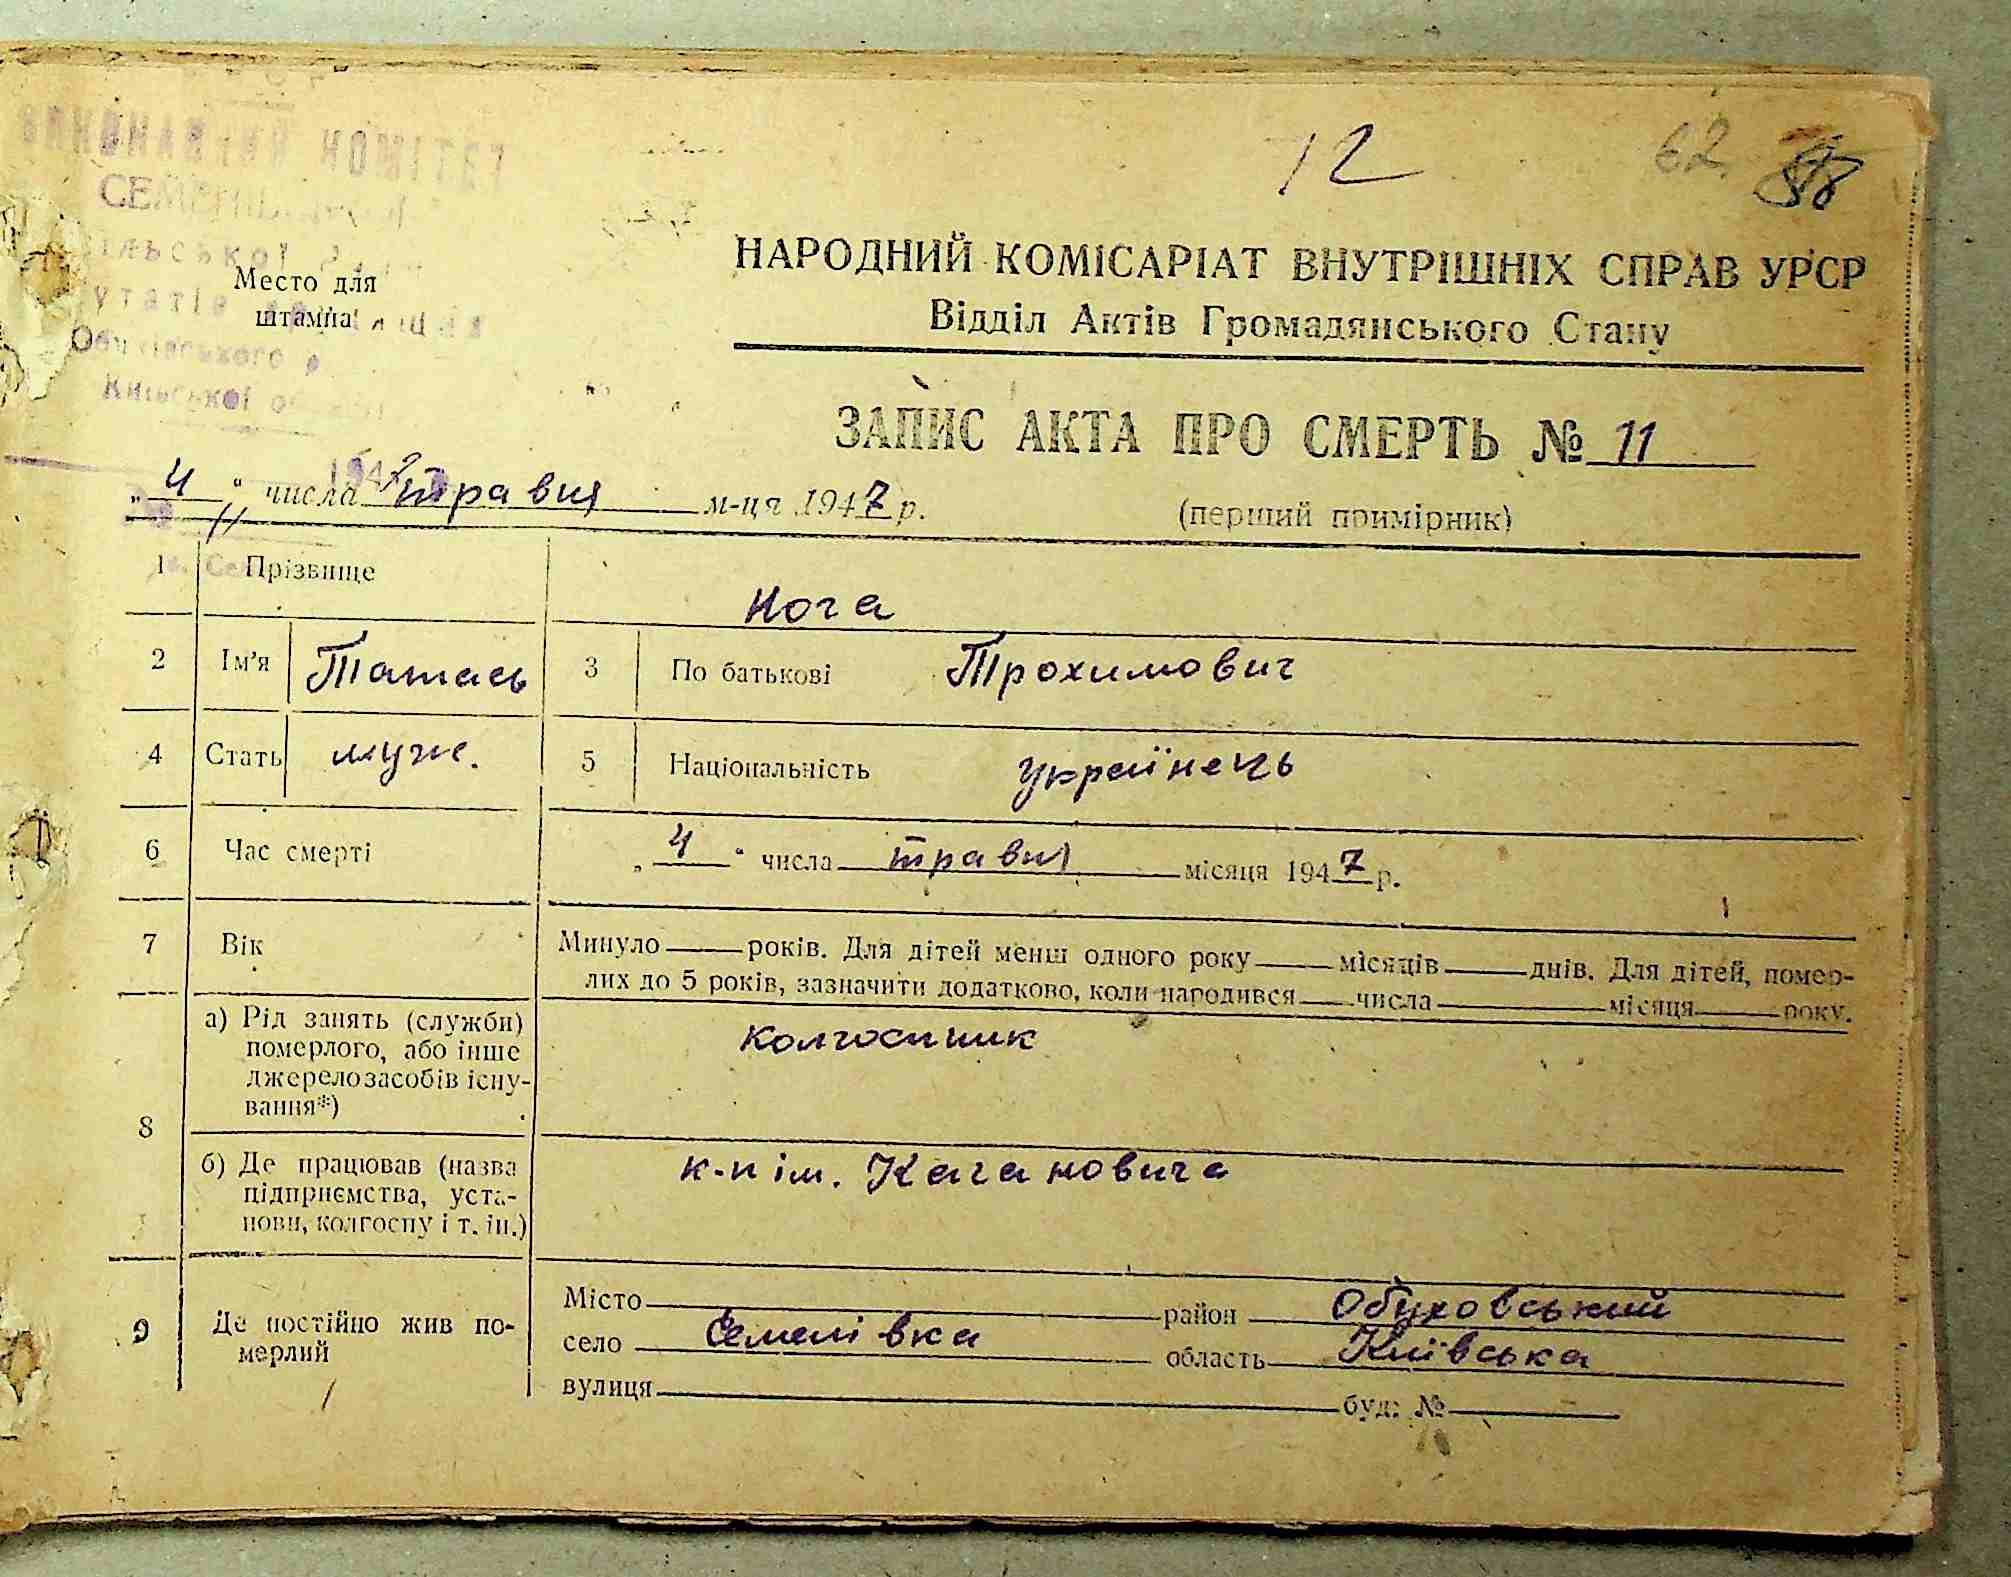 12
62
ВИКОНАВЧИЙ КОМІТЕТ
Место для
штампа
Київської
НАРОДНИЙ КОМІСАРІАТ ВНУТРІШНІХ СПРАВ УРСР
Відділ Актів Громадянського Стану
ЗАПИС АКТА ПРО СМЕРТЬ № 11
„ 4 “ числа травня м-ця 1947 р.
(перший примірник)
1 Прізвище Нога
2 Ім'я 3 По батькові Трохимович
4 Стать муж. 5 Національність українець
6 Час смерті „ 4 “ числа травня місяця 1947 р.
7 Вік Минуло — років. Для дітей менш одного року — місяців — днів. Для дітей, помер-
лих до 5 років, зазначити додатково, коли народився — числа — місяця — року.
8 а) Рід занять (служби)
померлого, або інше
джерело засобів існу-
вання*)
колгоспник
б) Де працював (назва
підприємства, уста-
нови, колгоспу і т. ін.)
к-п ім. Кагановича
9 Де постійно жив по-
мерлий
Місто — район Обуховський
село Семенівка область Київська
вулиця — буд. № —